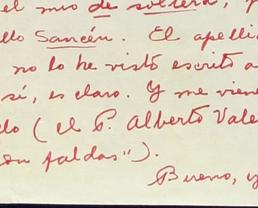 el mío de soltera,
llo Sancén. El apelli
no lo he visto escrito a
sí, es claro. Y me viene
lo (el P. Alberto Vale
on faldas").
Bueno, y